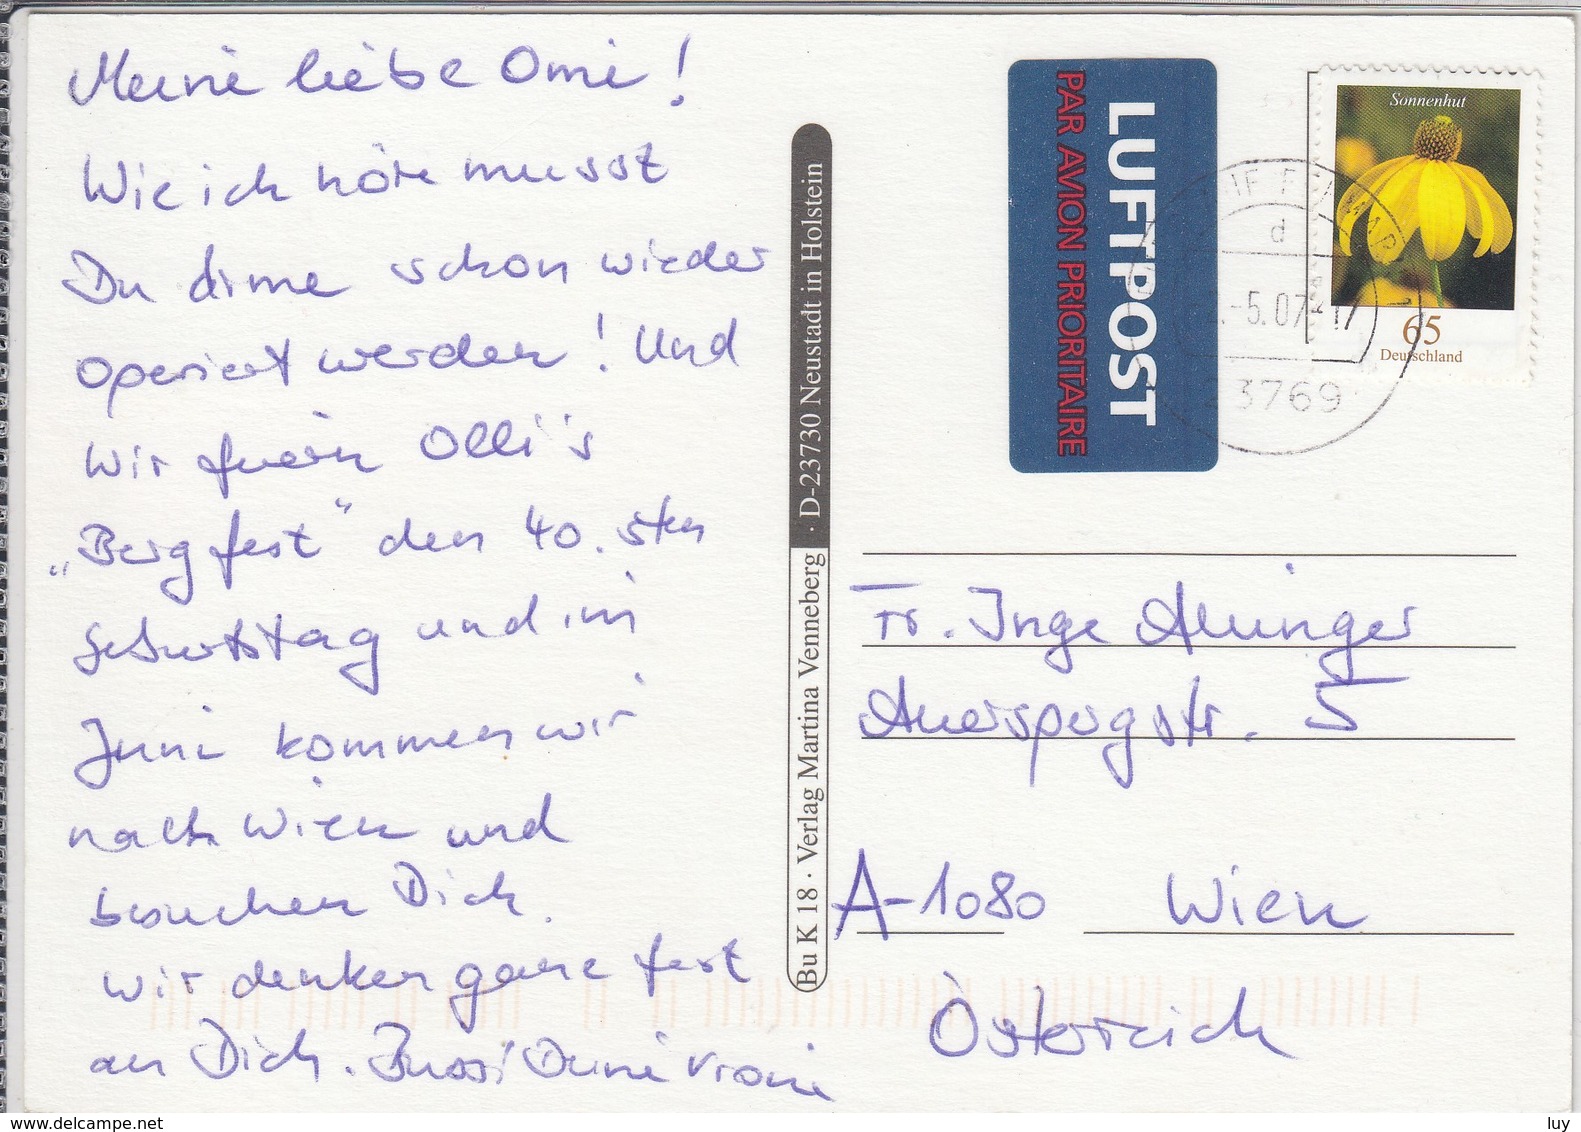 Meine liebe Omi!
Wie ich höre musst
Du arme schon wieder
operiert werden! Und
wir feiern Olli's
„Bergfest" den 40.sten
Geburtstag und im
Juni kommen wir
nach Wien und
besuchen Dich.
Wir denken ganz fest
an Dich. Bussi Deine
Bu K 18 · Verlag Martina Venneberg · D-23730 Neustadt in Holstein
LUFTPOST
PAR AVION PRIORITAIRE
Sonnenhut
65
Deutschland
d
-5.07-17
23769
Fr. Inge
Auerspergstr. 5
A-1080 Wien
Österreich
luy
www.delcampe.net